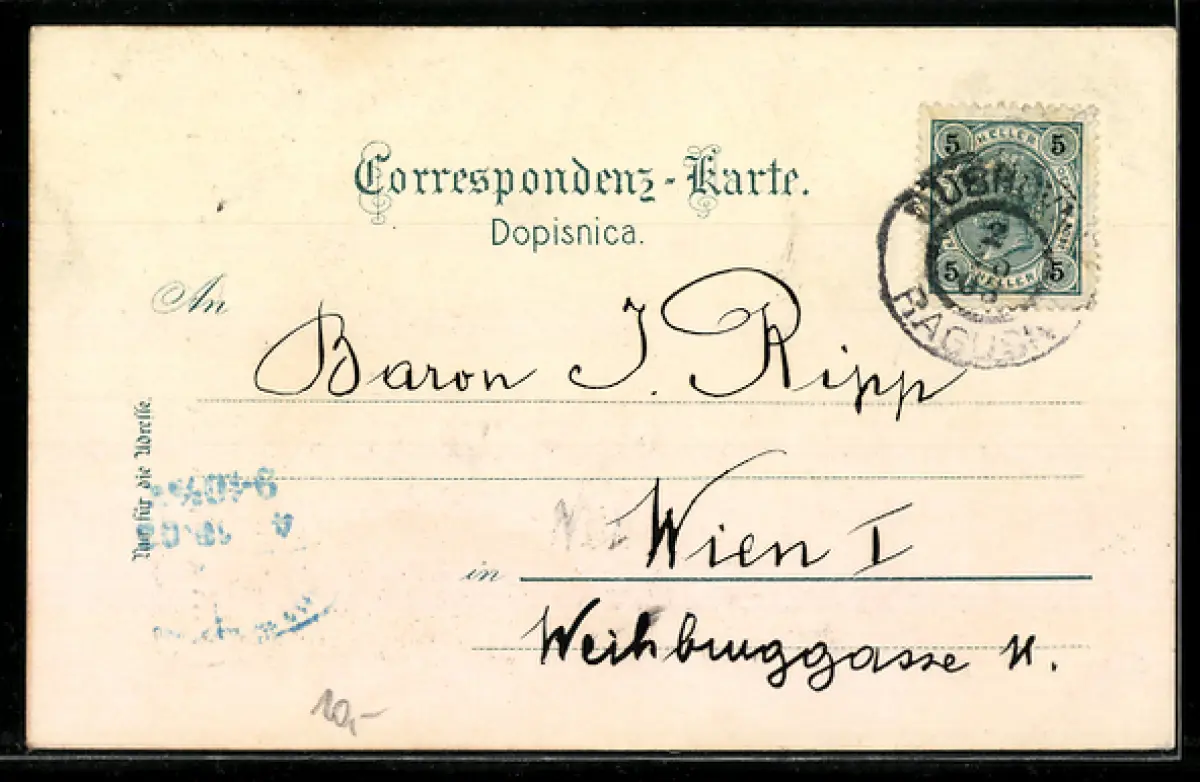 Correspondenz-Karte.
Dopisnica.
5 HELLER 5
5 HELLER 5
2
03
RAGUSA
An
Baron J. Ripp
Nur für die Adresse.
9·40
in Wien I
Weihburggasse 11.
10,-